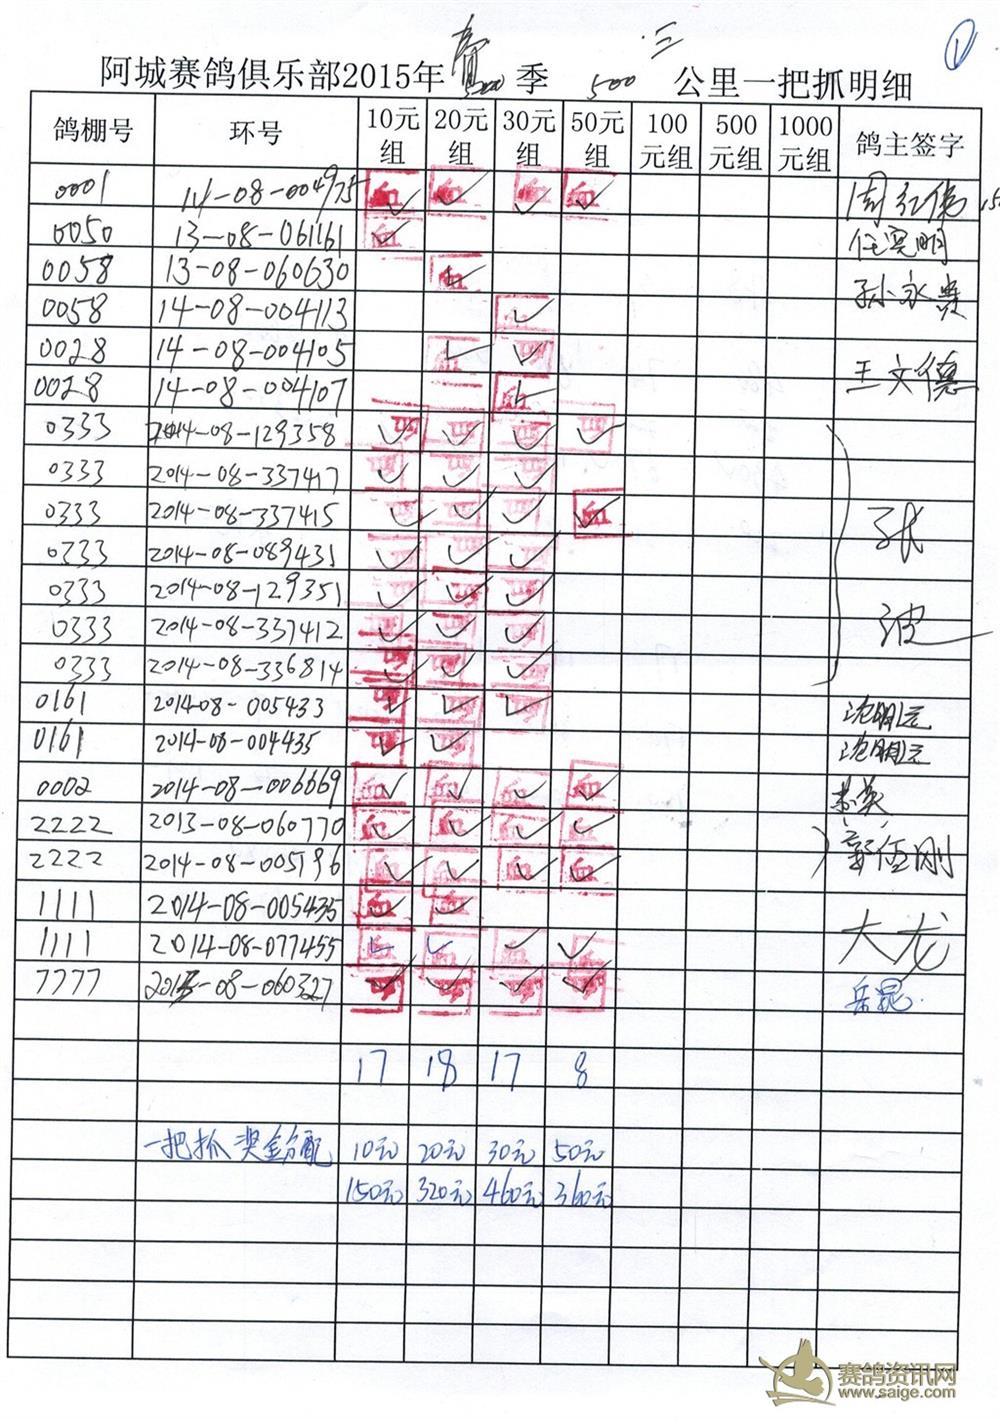 ①
三
阿城赛鸽俱乐部2015年 季 500 公里一把抓明细
鸽棚号 环号 10元组 20元组 30元组 50元组 100元组 500元组 1000元组 鸽主签字
0001 14-08-004975 ✓ ✓ ✓ ✓
0050 13-08-061161 ✓
0058 13-08-060630 ✓ 孙永
0058 14-08-004113 ✓
0028 14-08-004105 ✓ ✓ 王文德
0028 14-08-004107 ✓
0333 2014-08-129358 ✓ ✓ ✓ ✓
0333 2014-08-337417 ✓ ✓ ✓
0333 2014-08-337415 ✓ ✓ ✓ ✓ 张
0333 2014-08-089431 ✓ ✓ ✓
0333 2014-08-129351 ✓ ✓ ✓
0333 2014-08-337412 ✓ ✓ ✓ 波
0333 2014-08-336814 ✓ ✓ ✓
0161 2014-08-005433 ✓ ✓ ✓
0161 2014-08-004435 ✓ ✓
0002 2014-08-006669 ✓ ✓ ✓ ✓
2222 2013-08-060770 ✓ ✓ ✓ ✓
2222 2014-08-005796 ✓ ✓ ✓ ✓
1111 2014-08-005435 ✓ ✓ 大龙
1111 2014-08-077455 ✓ ✓ ✓ ✓
7777 2013-08-060327 ✓ ✓ ✓ ✓
17 18 17 8
一把抓奖金分配 10元 20元 30元 50元
150元 320元 460元 360元
赛鸽资讯网
www.saige.com